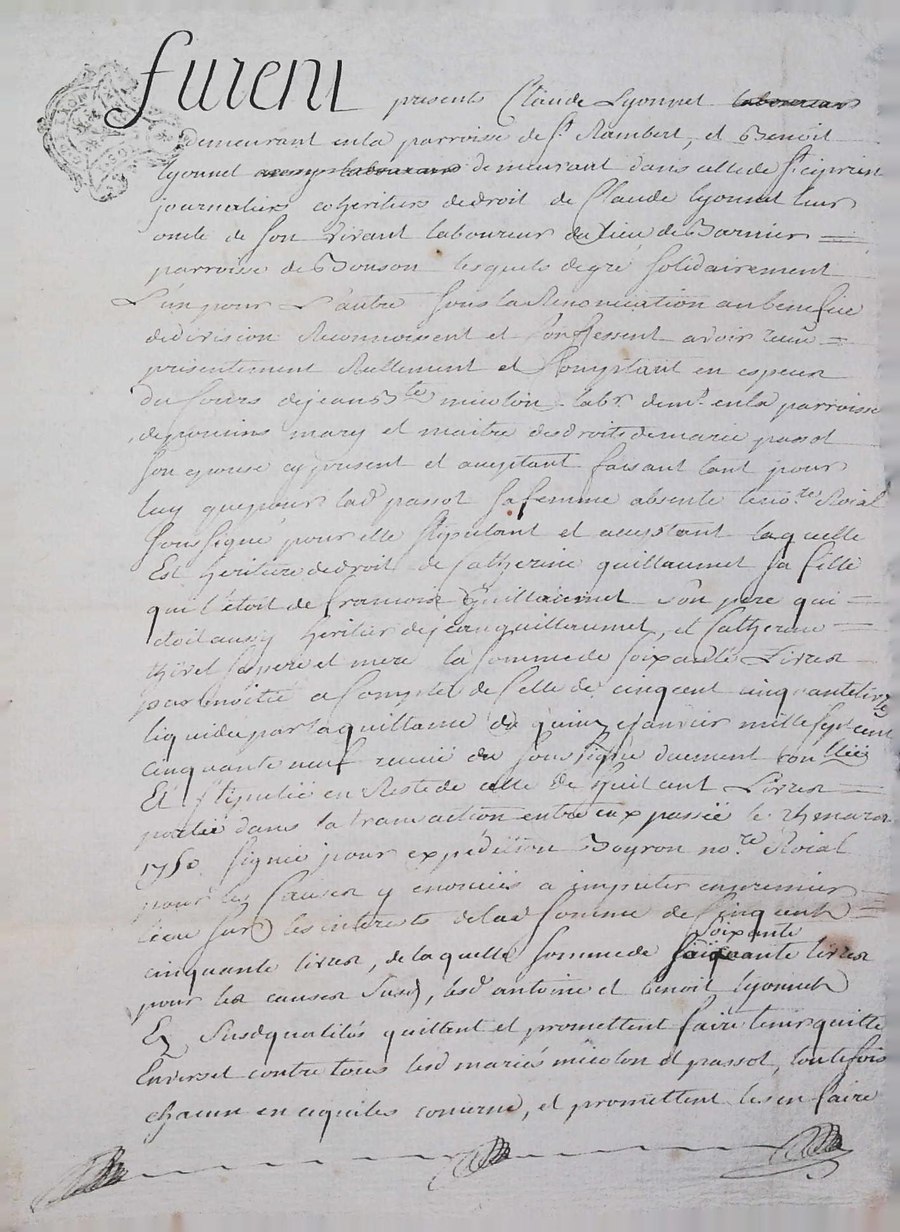 furent presents Claude Lyonnet laboureur
demeurant en la parroisse de St. Rambert, et Benoit
lyonnet laboureur demeurant dans celle de St. Ciprien
journaliers coheritiers de droit de Claude lyonnet leur
oncle de son vivant laboureur du lieu de Barnier
parroisse de Bonson lesquels de gré solidairement
L'un pour L'autre sous la Renonciation au benefice
de division Reconnoissent et Confessent avoir receu
présentement Reellement et Comptant en especes
du Cours de jean Bte micolon labr. demt. en la parroisse
de pouins mary et maitre des droits de marie passot
son epouse cy present et aceptant faisant tant pour
luy que pour lad passot sa femme absente le nore Roial
soussigné pour elle stipulant et aceptant laquelle
Est heritiere de droit de Catherine guillaumet sa fille
qui l'étoit de francois Guillaumet son pere qui
étoit aussy héritier de jean guillaumet, et Catherine
thivet ses pere et mere la somme de soixante Livres
par moitié a Compte de Celle de cinq cent cinquante livres
liquidée par la quittance du quinze janvier mille sept cent
cinquante neuf receue du soussigné duement controllée
Et stipulée en Reste de celle de huit cent Livres
portée dans la transaction entre eux passée le 24 mars
1750 signée pour expédition Boyron nore. Roial
pour les Causes y enoncées a imputer en premier
lieu sur les interets de lad somme de Cinq cent
soixante
cinquante livres, de laquelle somme de livres
pour les causes susd, lesd antoine et benoit lyonnet
Ez susd qualités quittent et promettent faire tenir quitte
Envers et contre tous lesd mariés micolon et passot, toutefois
chacun en ce qui les concerne, et promettent les en faire